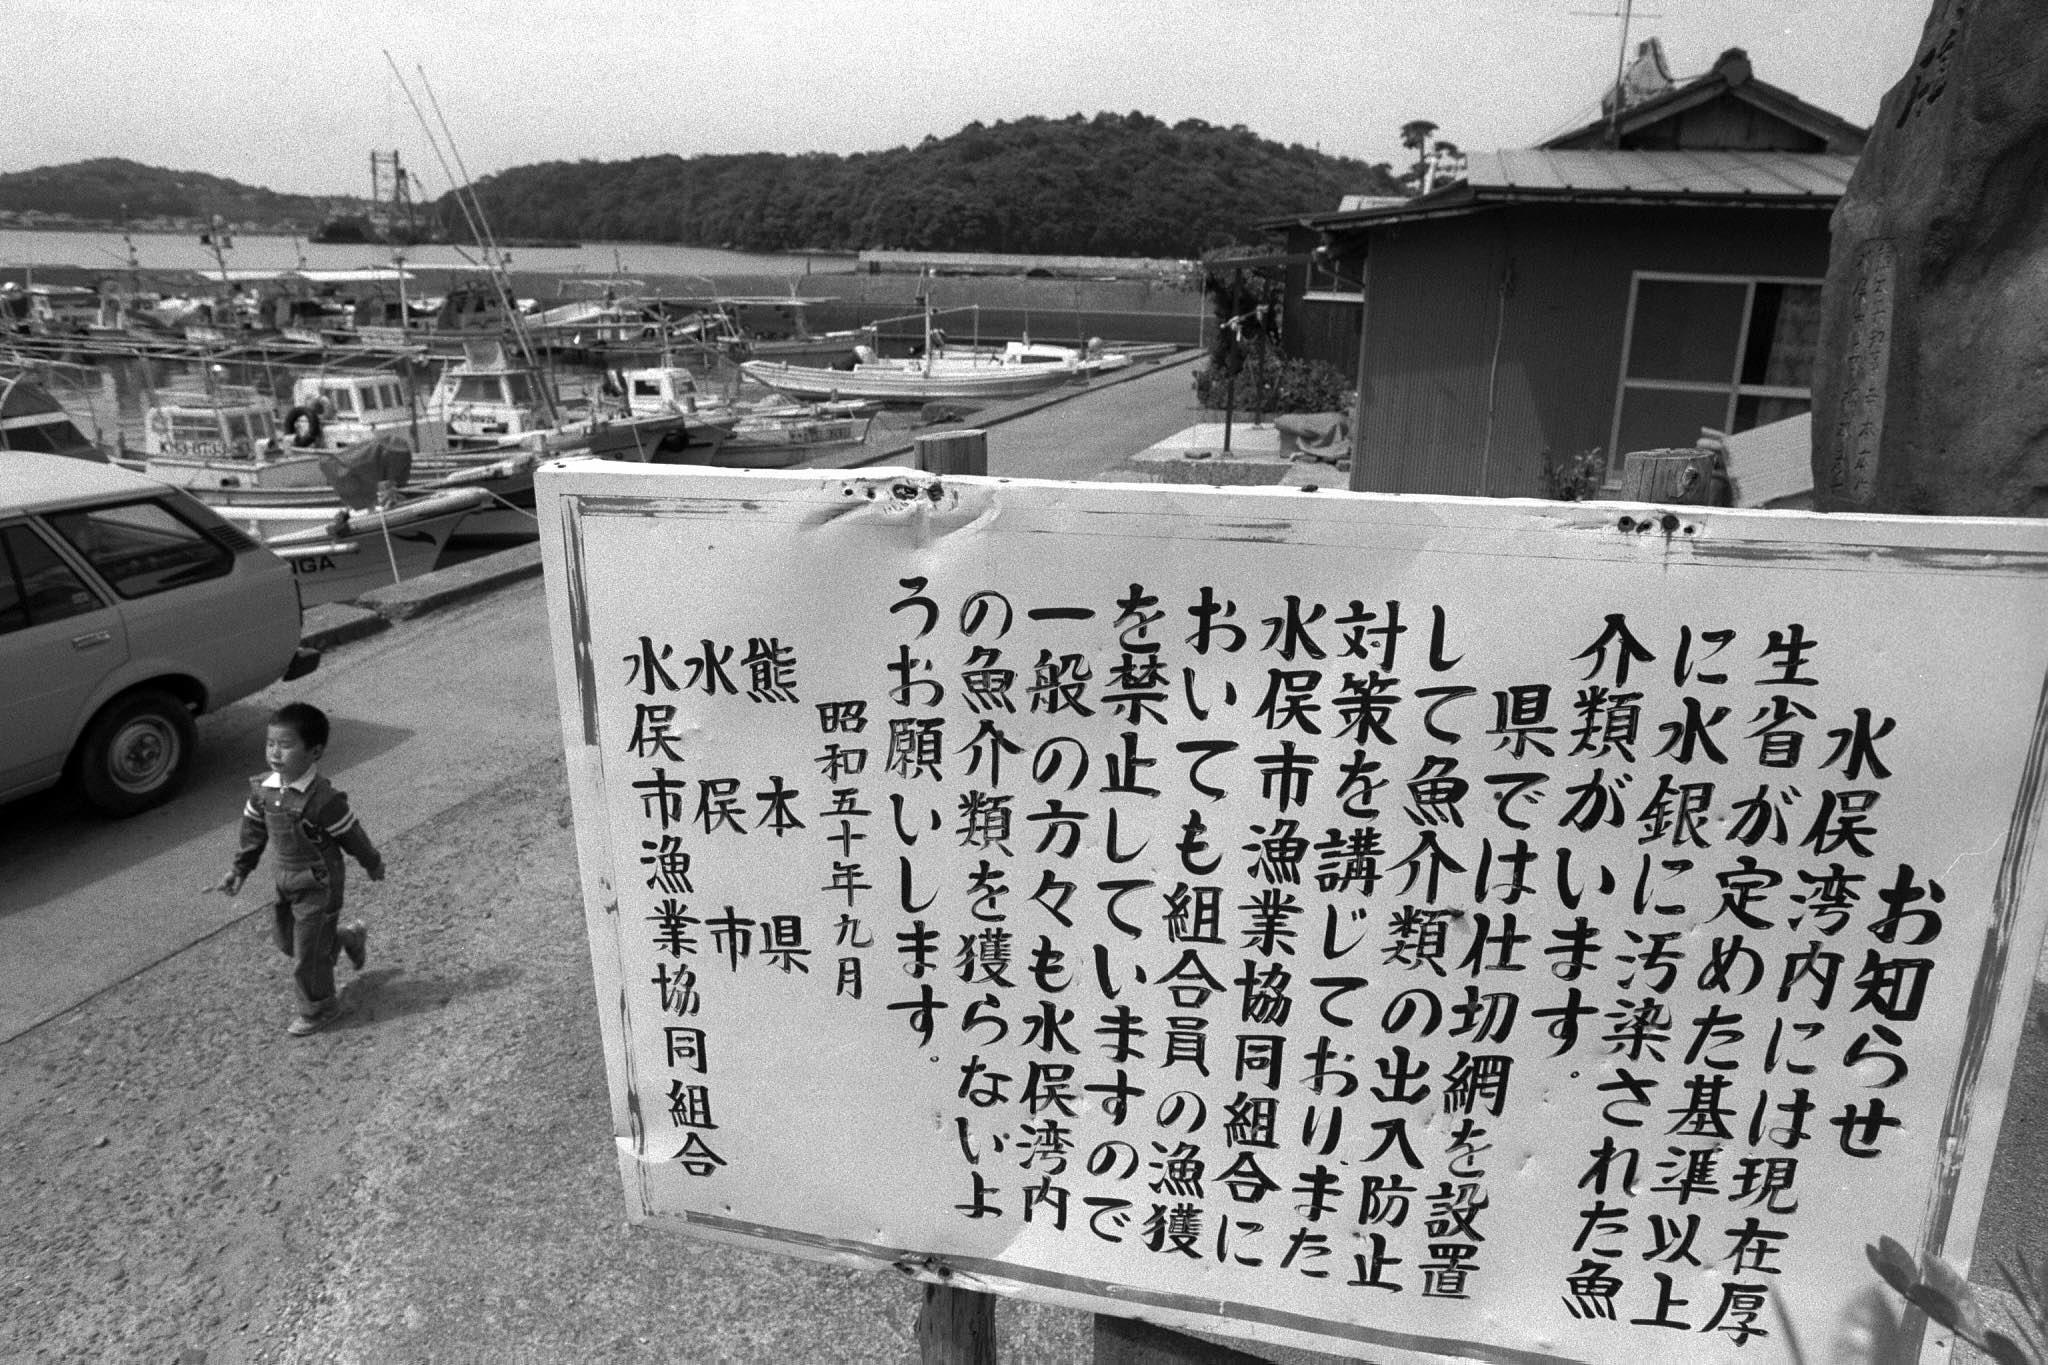 お知らせ
水俣湾内には現在厚
生省が定めた基準以上
に水銀に汚染された魚
介類がいます。
県では仕切網を設置
して魚介類の出入防止
対策を講じておりまた
水俣市漁業協同組合に
おいても組合員の漁獲
を禁止していますので
一般の方々も水俣湾内
の魚介類を獲らないよ
うお願いします。
昭和五十年九月
熊本県
水俣市
水俣市漁業協同組合